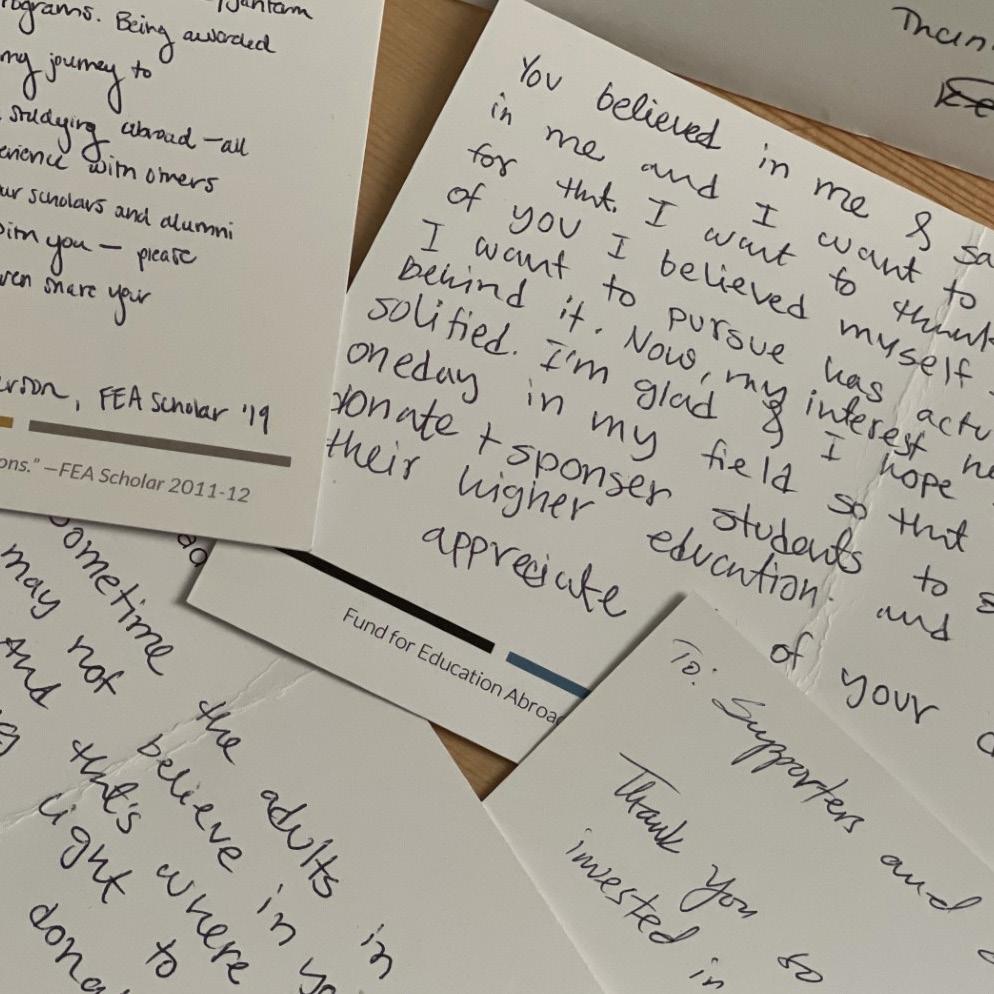 programs. Being awarded
my journey to
studying abroad—all
with others
scholars and alumni
with you — please
share your
, FEA Scholar '19
—FEA Scholar 2011-12
Than
You believed in me &
in me and I want to
for tht. I want to thank
of you I believed myself
I want to pursue has
behind it. Now, my interest
solified. I'm glad & I hope
oneday in my field so tht
donate + sponser students to
their higher education. and
appreciate of your
Fund for Education Abroad
sometime the adults in
may not believe in
And tht's where
light to
To: Supporters and
Thank You so
invested in